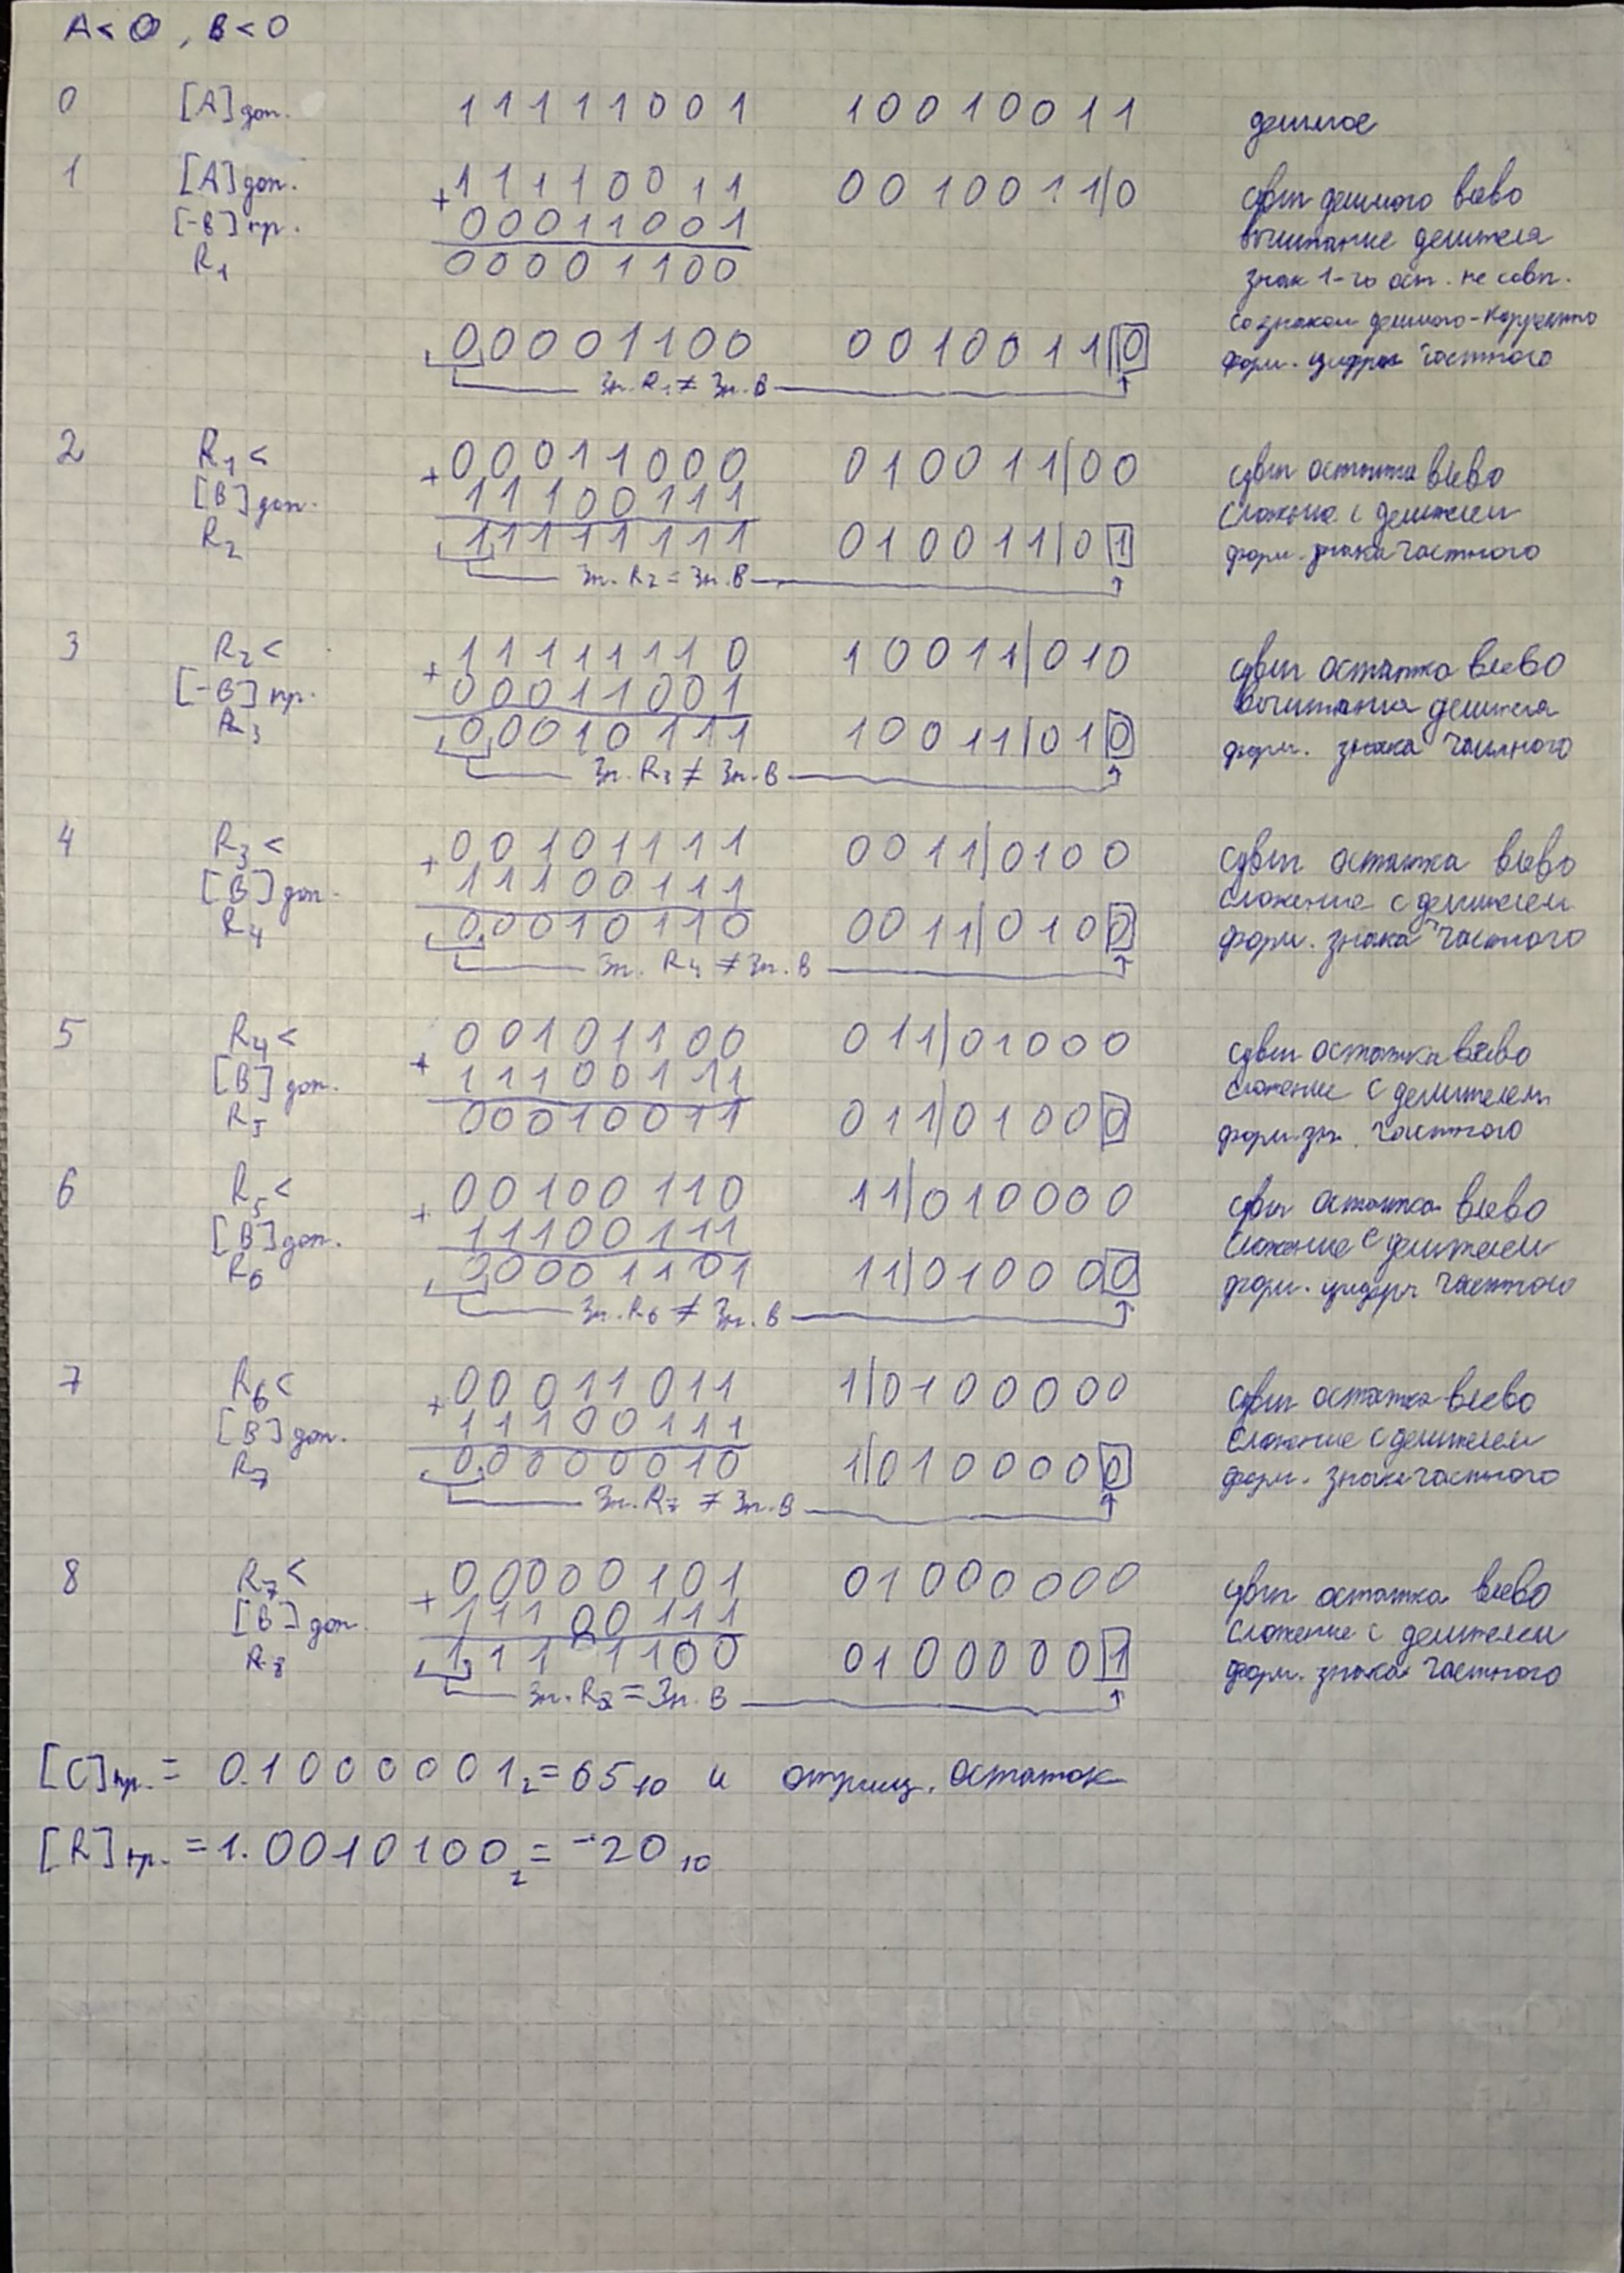 A < 0 , B < 0
0 [A]доп. 11111001 10010011 делимое
1 [A]доп. +11110011 0010011|0 сдвиг делимого влево
[-B]пр. 00011001 вычитание делителя
R1 00001100 знак 1-го ост. не совп.
со знаком делимого - корректно
00001100 0010011|0 форм. цифры частного
Зн. R1 ≠ Зн. B
2 R1 < +00011000 010011|00 сдвиг остатка влево
[B]доп. 11100111 сложение с делителем
R2 11111111 010011|01 форм. знака частного
Зн. R2 = Зн. B
3 R2 < +11111110 10011|010 сдвиг остатка влево
[-B]пр. 00011001 вычитания делителя
R3 00010111 10011|010 форм. знака частного
Зн. R3 ≠ Зн. B
4 R3 < +00101111 0011|0100 сдвиг остатка влево
[B]доп. 11100111 сложение с делителем
R4 00010110 0011|0100 форм. знака частного
Зн. R4 ≠ Зн. B
5 R4 < +00101100 011|01000 сдвиг остатка влево
[B]доп. 11100111 сложение с делителем
R5 00010011 011|01000 форм. зн. частного
6 R5 < +00100110 11|010000 сдвиг остатка влево
[B]доп. 11100111 сложение с делителем
R6 00001101 11|010000 форм. цифры частного
Зн. R6 ≠ Зн. B
7 R6 < +00011011 1|0100000 сдвиг остатка влево
[B]доп. 11100111 сложение с делителем
R7 0.0000010 1|0100000 форм. знака частного
Зн. R7 ≠ Зн. B
8 R7 < +00000101 01000000 сдвиг остатка влево
[B]доп. 11100111 сложение с делителем
R8 1.1101100 01000001 форм. знака частного
Зн. R8 = Зн. B
[C]пр. = 0.1000001₂ = 65₁₀ и отриц. остаток
[R]пр. = 1.0010100₂ = -20₁₀